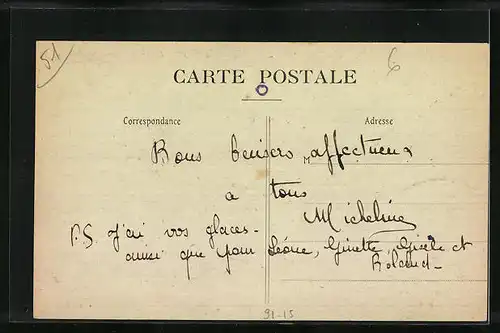 51
6
CARTE POSTALE
Correspondance
Adresse
Bons baisers affectueux
M
à tous
Micheline
P.S J'ai vos glaces -
aussi que pour Léone, Ginette, Gisèle et
Roland -
91-15